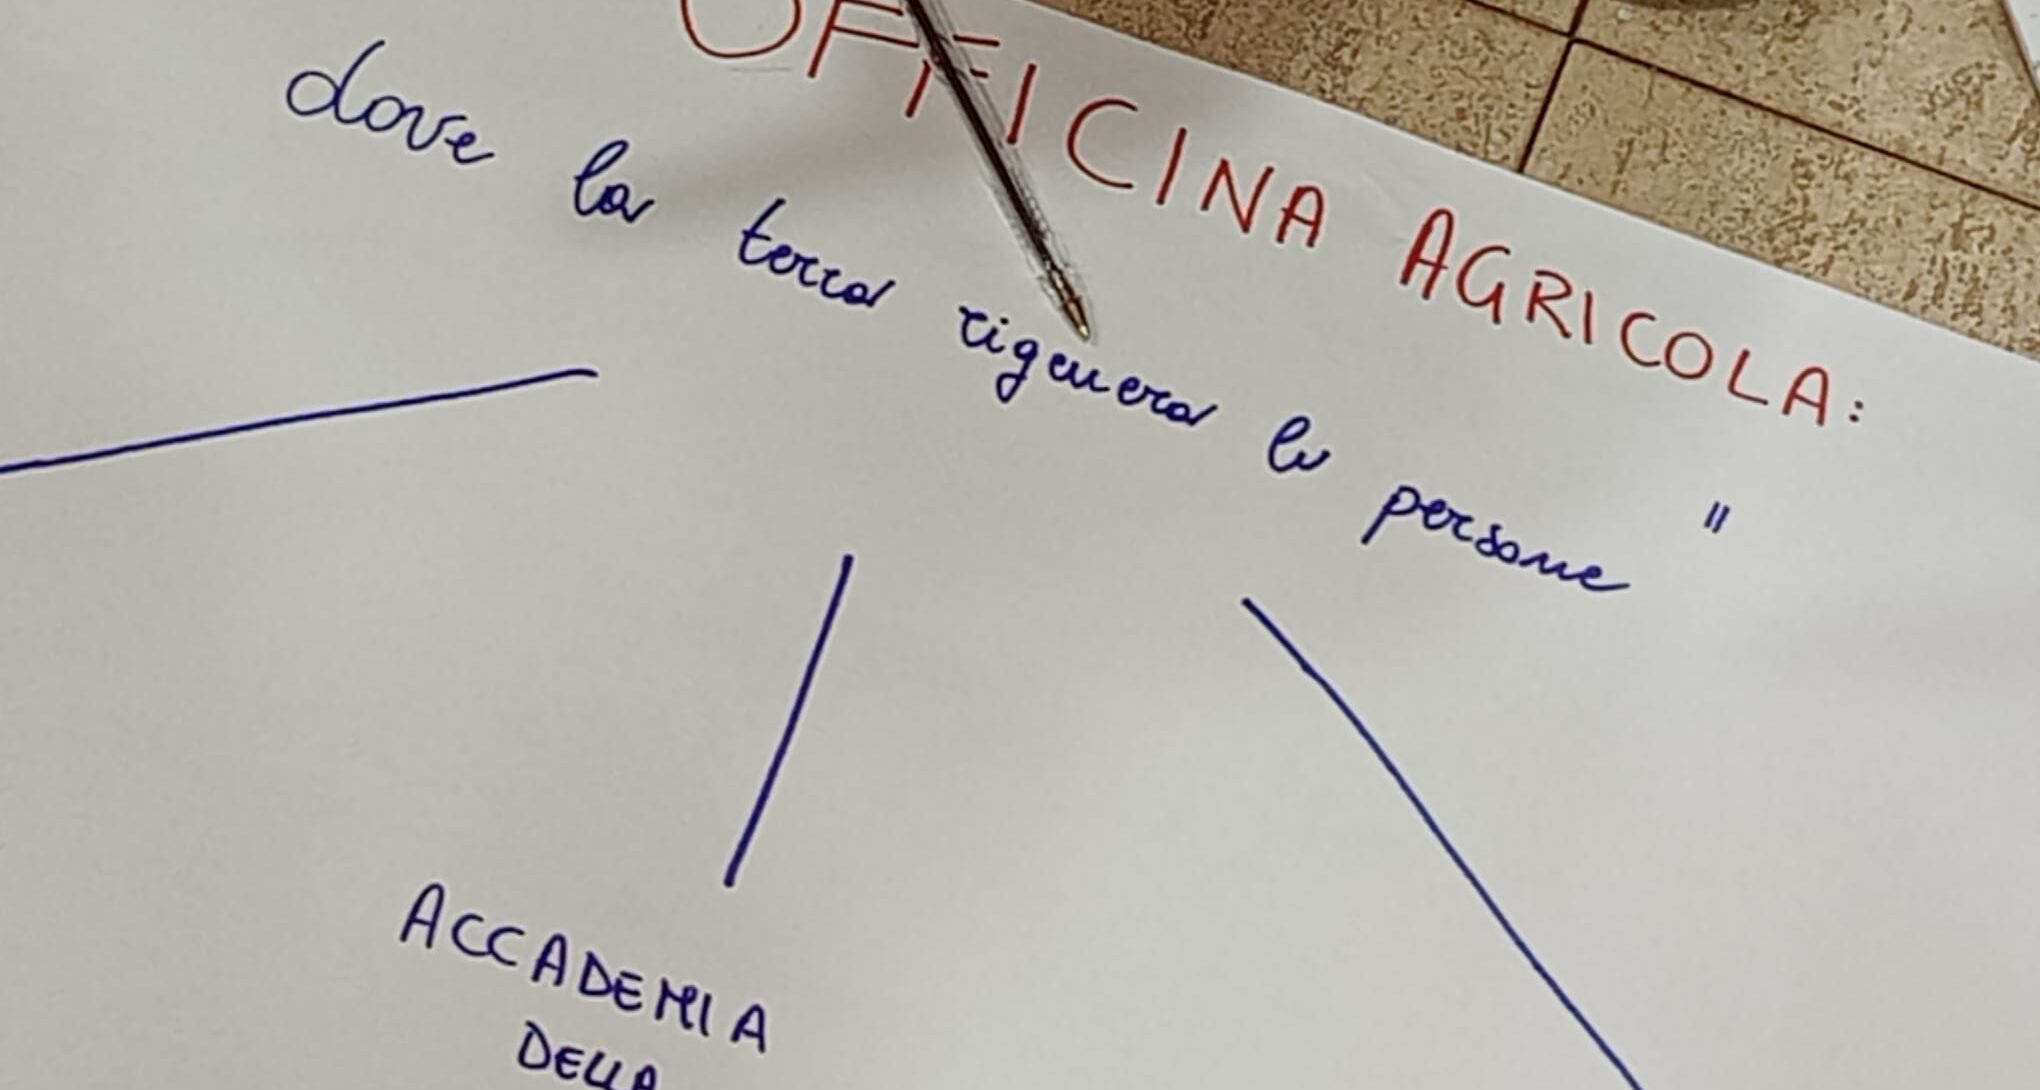 OFFICINA AGRICOLA:
dove la terra rigenera le persone "
ACCADEMIA
DELLA